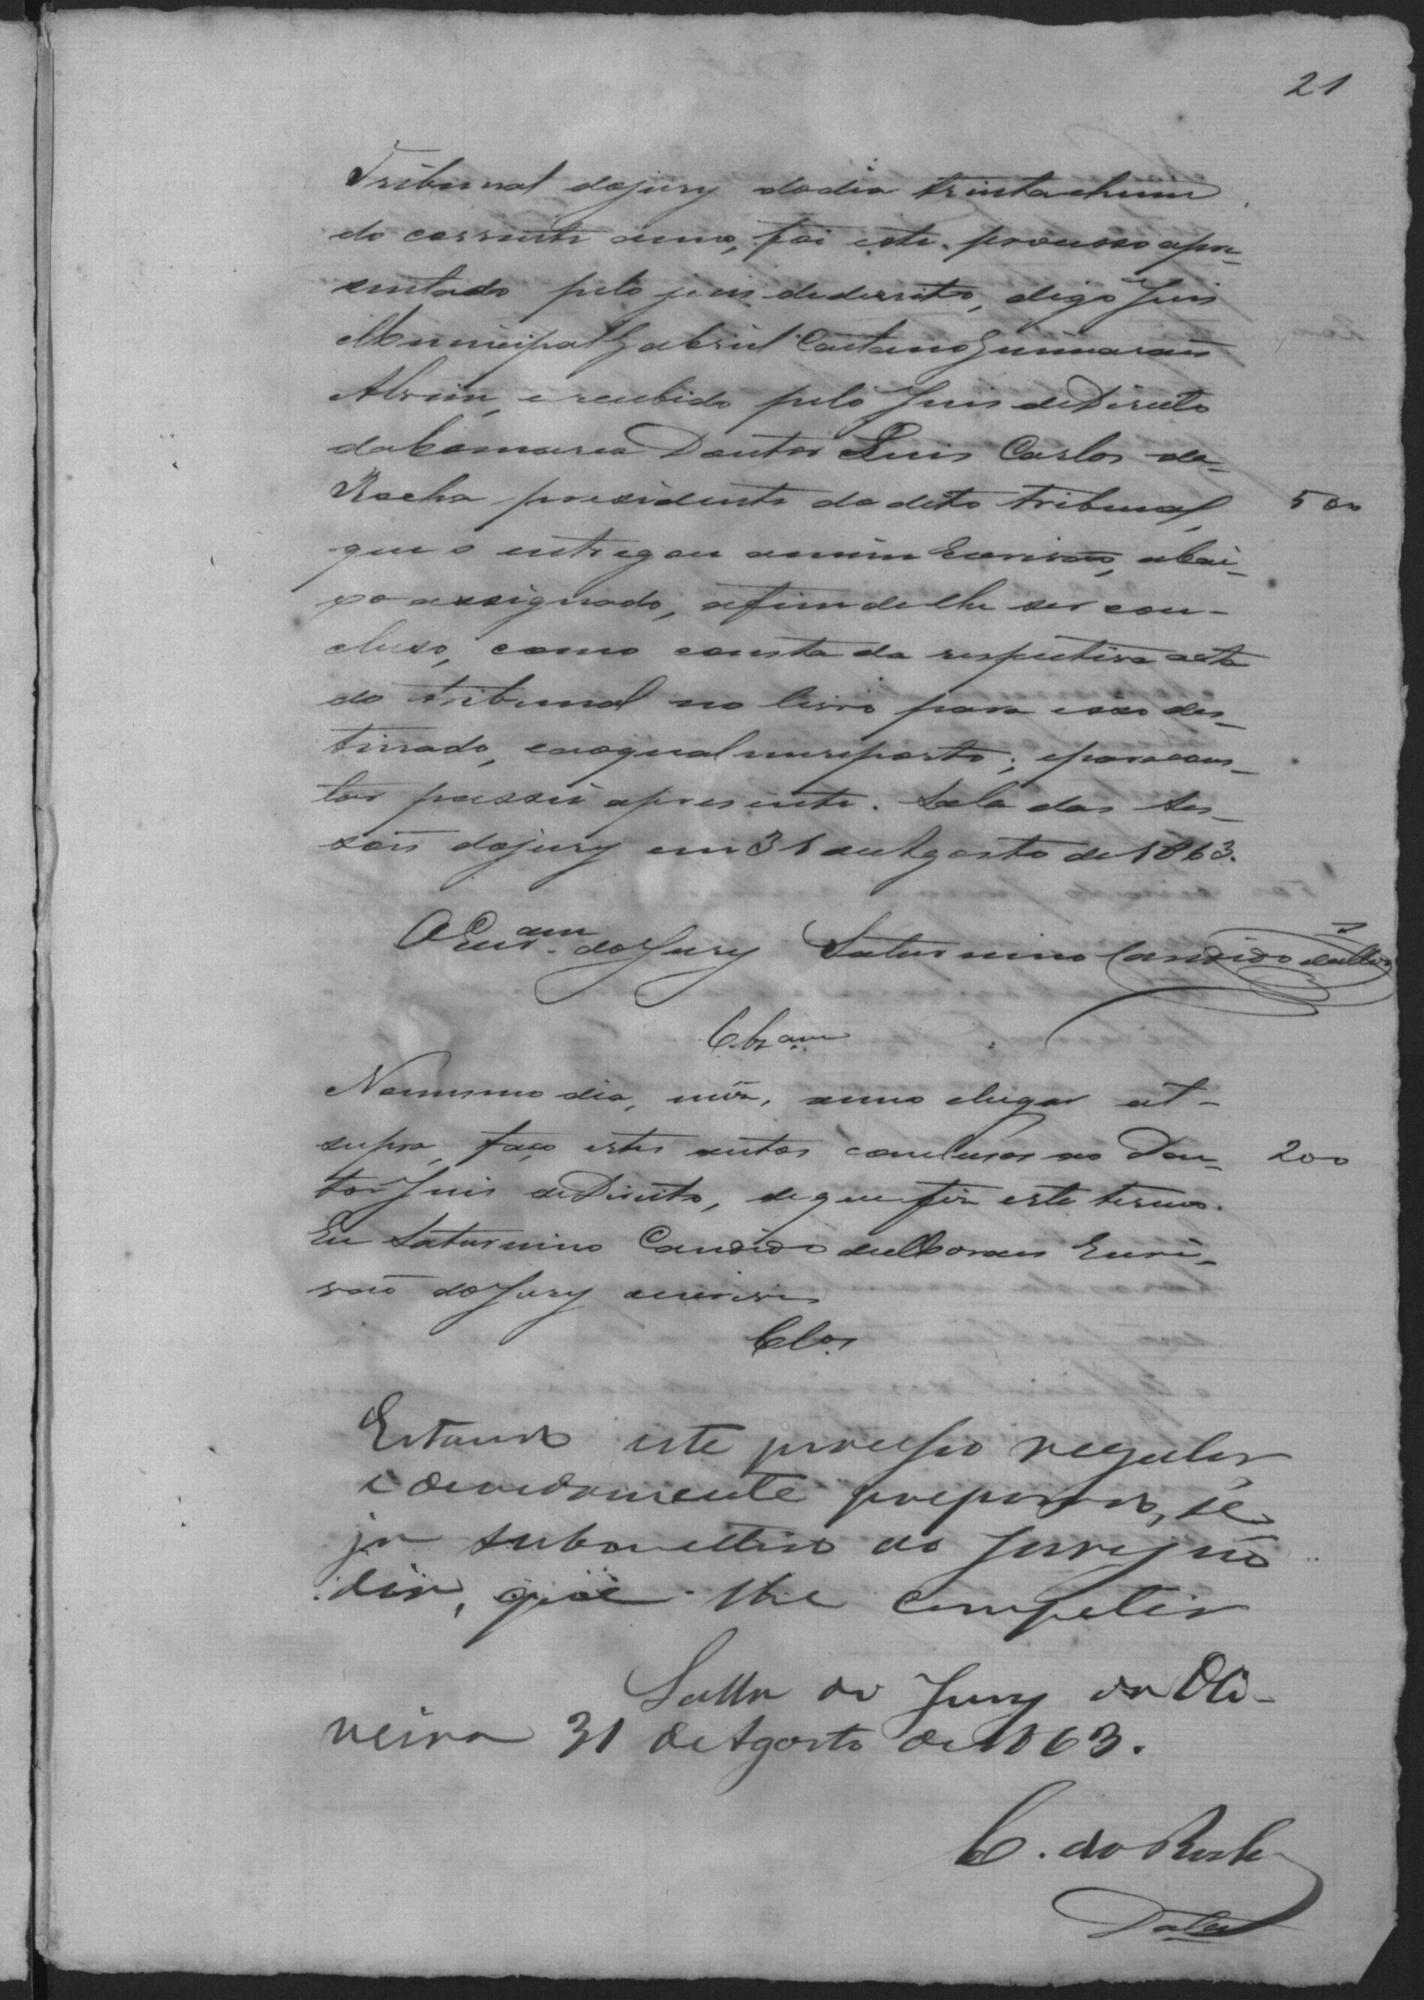 21
Tribunal dojury dodia trinta ehum
do corrente anno, foi este processo apre-
zentado pelo juis dedireito, digo Juis
Municipal Gabriel Caetano Guimaraes
Alvim, erecebido pelo Juis deDireito
da Comarca Doutor Luis Carlos da
Rocha prezidente do dito tribunal, 500
que o entregou amim Escrivaõ, abai-
xo assignado, afim de lhe ser con-
cluso, como consta da respectiva acta
do tribunal no livro para isso des-
tinado, enaqual mereporto; eparacons-
tar passei apresente. Sala das Ses-
soẽs dojury em 31 de Agosto de 1863.
O Escr.am do Jury Saturnino Candido de
Clz.am
Nomesmo dia, mês, anno elugar ut-
supra, faço estes autos conclusos ao Dou- 200
tor Juis deDireito, deque fiz este termo.
Eu Saturnino Candido de Moraes Escri-
vaõ do Jury escrevi
Clos
Estando este processo regular
e devidamente preparado, se-
ja submettido ao Jury no
dia, que lhe competir
Salla do Jury da Oli-
veira 31 de Agosto de 1863.
C. da Rocha
Data